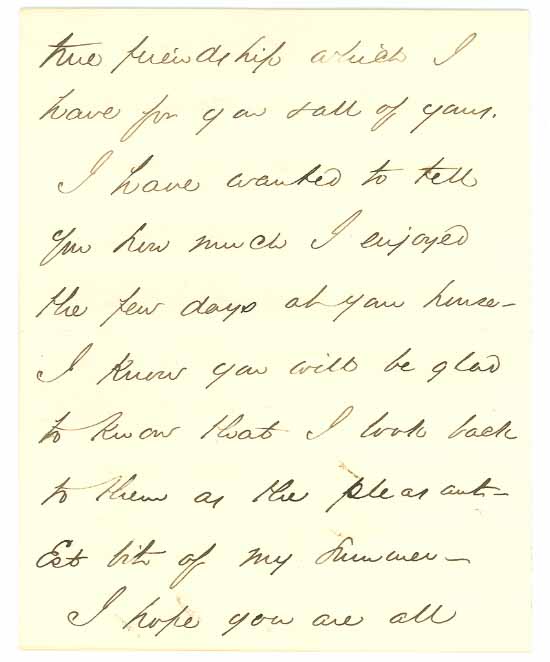 true friendship which I
have for you & all of yours.
I have wanted to tell
you how much I enjoyed
the few days at your house—
I know you will be glad
to know that I look back
to them as the pleasant—
Est bit of my Summer—
I hope you are all